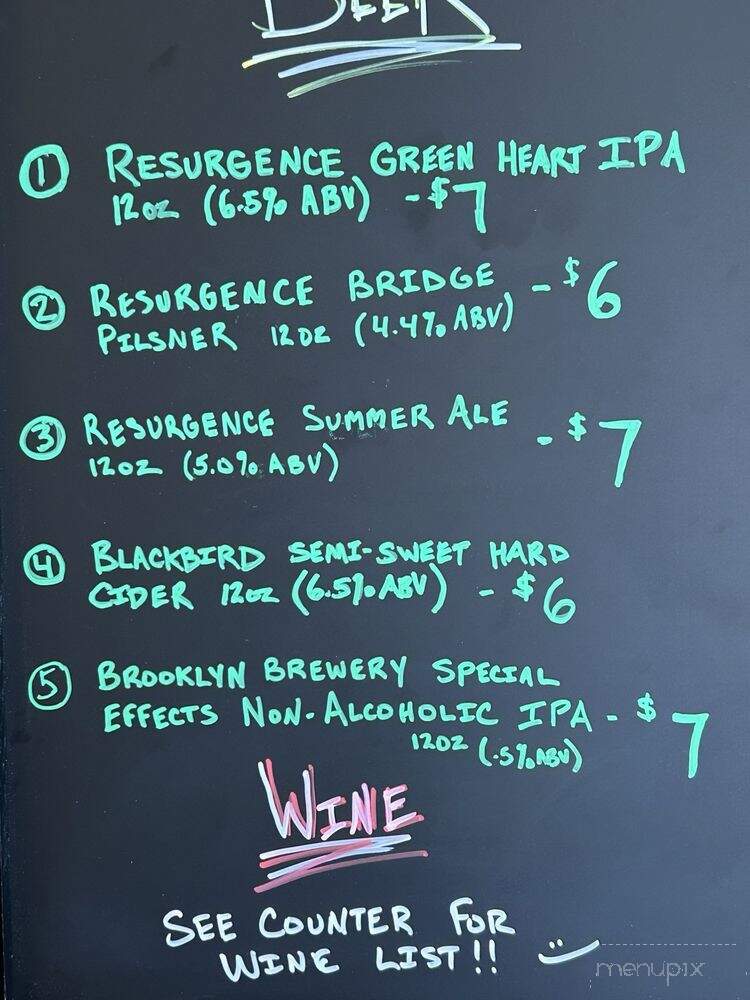 BEER
① RESURGENCE GREEN HEART IPA
12oz (6.5% ABV) - $7
② RESURGENCE BRIDGE - $6
PILSNER 12oz (4.4% ABV)
③ RESURGENCE SUMMER ALE - $7
12oz (5.0% ABV)
④ BLACKBIRD SEMI-SWEET HARD
CIDER 12oz (6.5% ABV) - $6
⑤ BROOKLYN BREWERY SPECIAL
EFFECTS NON-ALCOHOLIC IPA - $7
12oz (.5% ABV)
WINE
SEE COUNTER FOR
WINE LIST!!
menupix